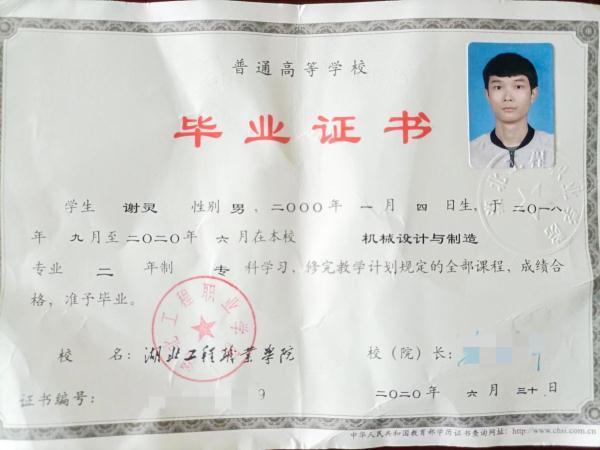 普通高等学校
毕业证书
学生 谢灵 性别 男，二〇〇〇年 一 月 四 日生，于 二〇一八
年 九 月至 二〇二〇年 六 月在本校 机械设计与制造
专业 二 年制 专 科学习，修完教学计划规定的全部课程，成绩合
格，准予毕业。
校 名：湖北工程职业学院 校（院）长：
证书编号： 9 二〇二〇年 六 月 三十 日
中华人民共和国教育部学历证书查询网址：http://www.chsi.com.cn